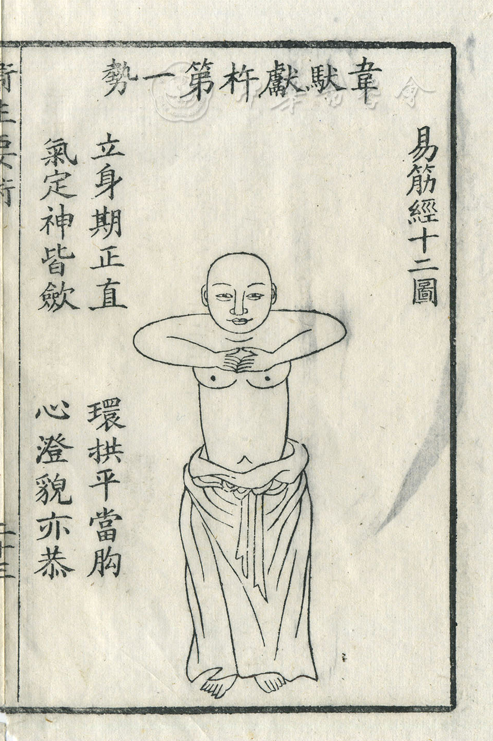 易筋經十二圖
韋馱獻杵第一勢
立身期正直
環拱平當胸
氣定神皆斂
心澄貌亦恭